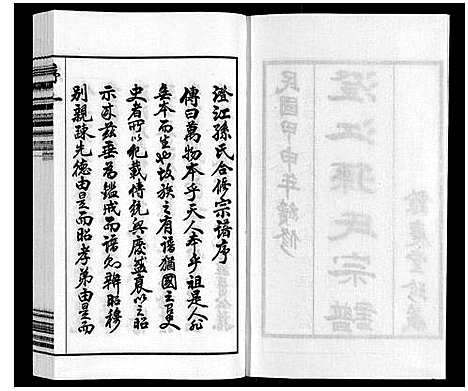 澄江孫氏合修宗譜序
傳曰萬物本乎天人本乎祖是人非
無本而生也故族之有譜猶國之有史
史者所以紀載傳統興廢盛衰以之昭
示來茲垂為鑑戒而譜則辨昭穆
別親疎先德由是而昭孝弟由是而
民國甲申年續修
澄江孫氏宗譜
珍藏